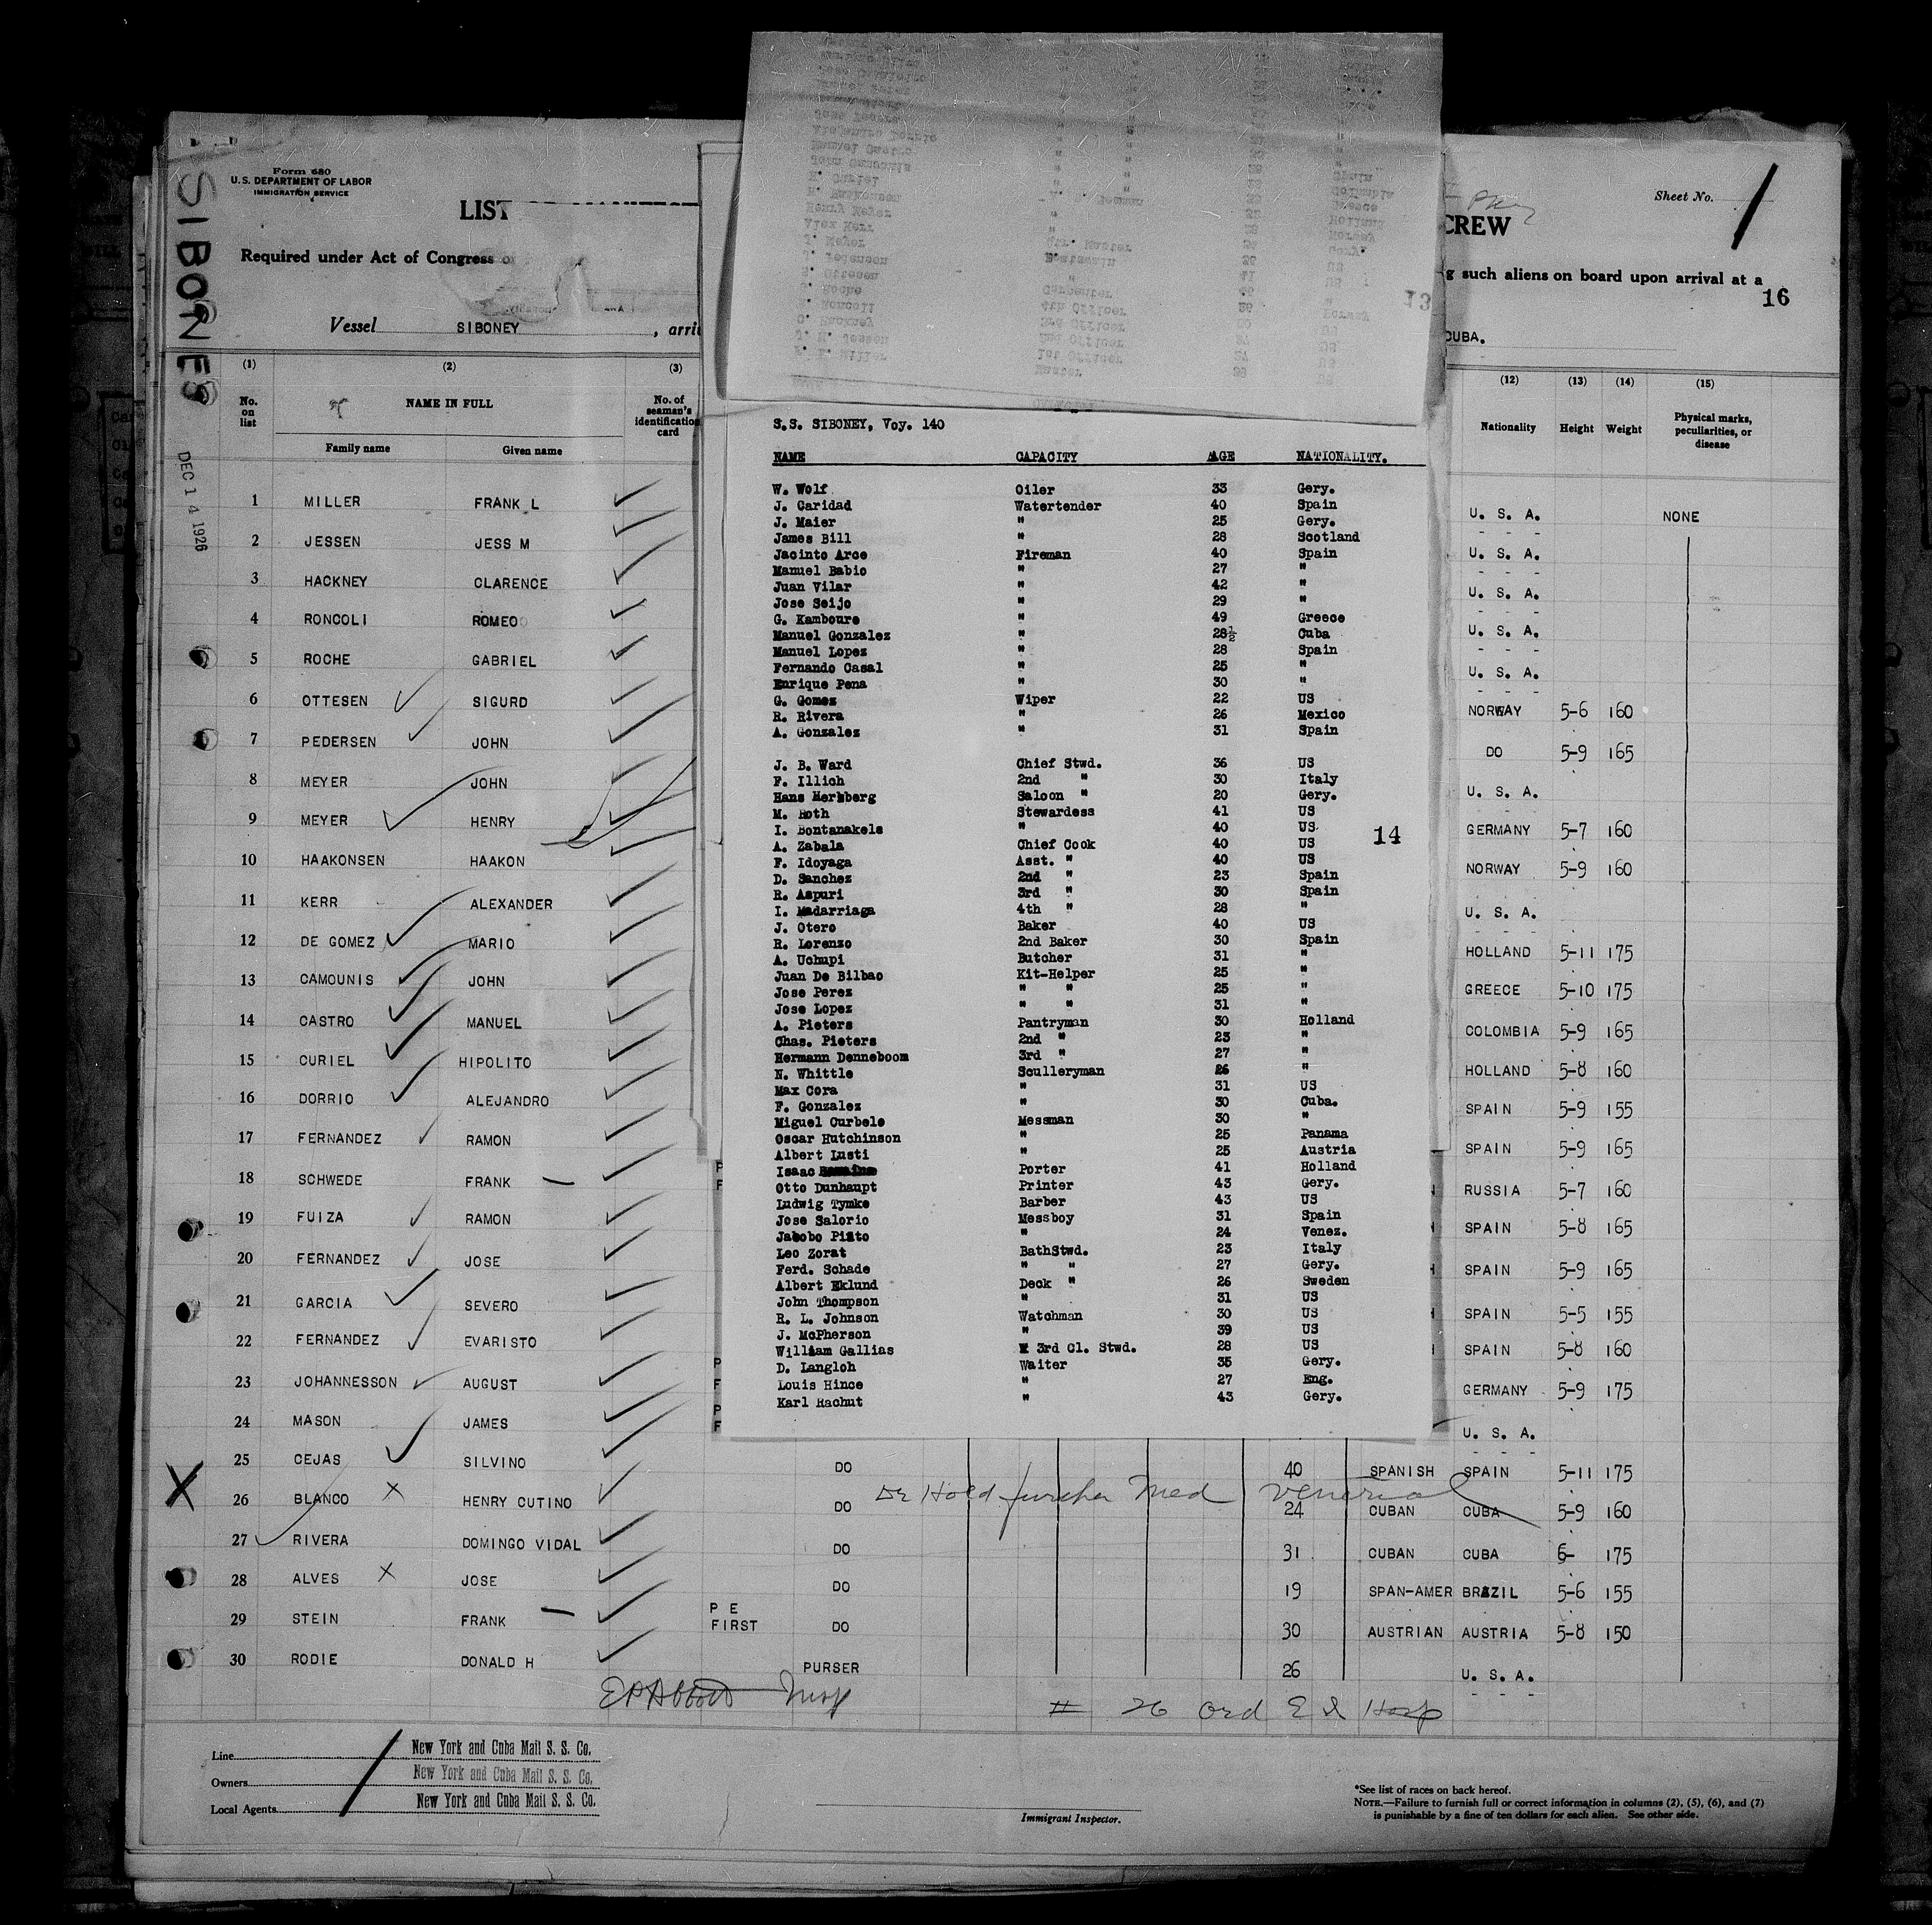 SIBONEY
DEC 14 1926
Form 680
U.S. DEPARTMENT OF LABOR
IMMIGRATION SERVICE
LIST
CREW
Sheet No. 1
Required under Act of Congress
such aliens on board upon arrival at a
16
Vessel SIBONEY, arri
CUBA.
13
(1) (2) (3) (12) (13) (14) (15)
No. on list NAME IN FULL No. of seaman's identification card Nationality Height Weight Physical marks, peculiarities, or disease
Family name Given name
1 MILLER FRANK L U. S. A. NONE
2 JESSEN JESS M U. S. A.
3 HACKNEY CLARENCE U. S. A.
4 RONCOLI ROMEO U. S. A.
5 ROCHE GABRIEL U. S. A.
6 OTTESEN SIGURD NORWAY 5-6 160
7 PEDERSEN JOHN DO 5-9 165
8 MEYER JOHN U. S. A.
9 MEYER HENRY GERMANY 5-7 160
10 HAAKONSEN HAAKON NORWAY 5-9 160
11 KERR ALEXANDER U. S. A.
12 DE GOMEZ MARIO HOLLAND 5-11 175
13 CAMOUNIS JOHN GREECE 5-10 175
14 CASTRO MANUEL COLOMBIA 5-9 165
15 CURIEL HIPOLITO HOLLAND 5-8 160
16 DORRIO ALEJANDRO SPAIN 5-9 155
17 FERNANDEZ RAMON SPAIN 5-9 165
18 SCHWEDE FRANK RUSSIA 5-7 160
19 FUIZA RAMON SPAIN 5-8 165
20 FERNANDEZ JOSE SPAIN 5-9 165
21 GARCIA SEVERO SPAIN 5-5 155
22 FERNANDEZ EVARISTO SPAIN 5-8 160
23 JOHANNESSON AUGUST GERMANY 5-9 175
24 MASON JAMES U. S. A.
25 CEJAS SILVINO DO 40 SPANISH SPAIN 5-11 175
Hold further Med Venerial
26 BLANCO HENRY CUTINO DO 24 CUBAN CUBA 5-9 160
27 RIVERA DOMINGO VIDAL DO 31 CUBAN CUBA 6- 175
28 ALVES JOSE DO 19 SPAN-AMER BRAZIL 5-6 155
29 STEIN FRANK P E FIRST DO 30 AUSTRIAN AUSTRIA 5-8 150
30 RODIE DONALD H PURSER 26 U. S. A.
# 26 Ord E I Hosp
S.S. SIBONEY, Voy. 140
NAME CAPACITY AGE NATIONALITY.
W. Wolf Oiler 33 Gery.
J. Caridad Watertender 40 Spain
J. Maier " 25 Gery.
James Bill " 28 Scotland
Jacinto Arce Fireman 40 Spain
Manuel Babio " 27 "
Juan Vilar " 42 "
Jose Seijo " 29 "
G. Kamboure " 49 Greece
Manuel Gonzalez " 28½ Cuba
Manuel Lopez " 28 Spain
Fernando Casal " 25 "
Enrique Pena " 30 "
G. Gomez Wiper 22 US
R. Rivera " 26 Mexico
A. Gonzalez " 31 Spain
J. B. Ward Chief Stwd. 36 US
F. Illich 2nd " 30 Italy
Hans Herhberg Saloon " 20 Gery.
M. Roth Stewardess 41 US
I. Bontanakels " 40 US
14
A. Zabala Chief Cook 40 US
F. Idoyaga Asst. " 40 US
D. Sanchez 2nd " 23 Spain
R. Aspuri 3rd " 30 Spain
I. Madarriaga 4th " 28 "
J. Otero Baker 40 US
R. Lorenzo 2nd Baker 30 Spain
A. Uchupi Butcher 31 "
Juan De Bilbao Kit-Helper 25 "
Jose Perez " " 25 "
Jose Lopez " " 31 "
A. Pieters Pantryman 30 Holland
Chas. Pieters 2nd " 23 "
Hermann Denneboom 3rd " 27 "
N. Whittle Sculleryman 26 "
Max Cora " 31 US
F. Gonzalez " 30 Cuba.
Miguel Curbelo Messman 30 "
Oscar Hutchinson " 25 Panama
Albert Lusti " 25 Austria
Isaac Porter 41 Holland
Otto Dunhaupt Printer 43 Gery.
Ludwig Tymke Barber 43 US
Jose Salorio Messboy 31 Spain
Jacobo Piato " 24 Venez.
Leo Zorat BathStwd. 23 Italy
Ferd. Schade " " 27 Gery.
Albert Eklund Deck " 26 Sweden
John Thompson " 31 US
R. L. Johnson Watchman 30 US
J. McPherson " 39 US
William Gallias 3rd Cl. Stwd. 28 US
D. Langloh Waiter 35 Gery.
Louis Hince " 27 Eng.
Karl Rachut " 43 Gery.
Line New York and Cuba Mail S. S. Co.
Owners New York and Cuba Mail S. S. Co.
Local Agents New York and Cuba Mail S. S. Co.
Immigrant Inspector.
*See list of races on back hereof.
NOTE.—Failure to furnish full or correct information in columns (2), (5), (6), and (7)
is punishable by a fine of ten dollars for each alien. See other side.